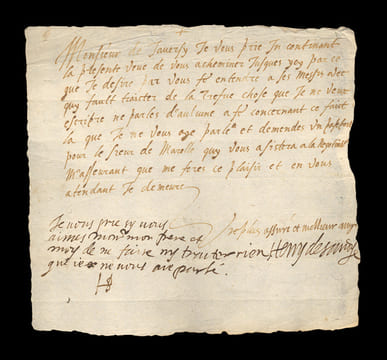 Monsieur de Taversy Je vous prie In continant
la presente veue de vous acheminer Jusques ycy par ce
que Je desire par vous f. entendre a ses Messrs avec
quy fault traicter de la trefue chose que Je ne veux
escribre ne parles d'aulcune aff. concernant ce faict
la que Je ne vous aye parle et demendes un passeport
pour le sieur de Marolle quy vous assistera a la
M'asseurant que me feres ce plaisir et en vous
atendant Je demeure
Je vous prie sy vous
aimes mon frere et
moy de ne faire ny trayter rien
que ie ne vous aie parlé.
Vostre plus assuré et meilleur amy
Henry de Savoye